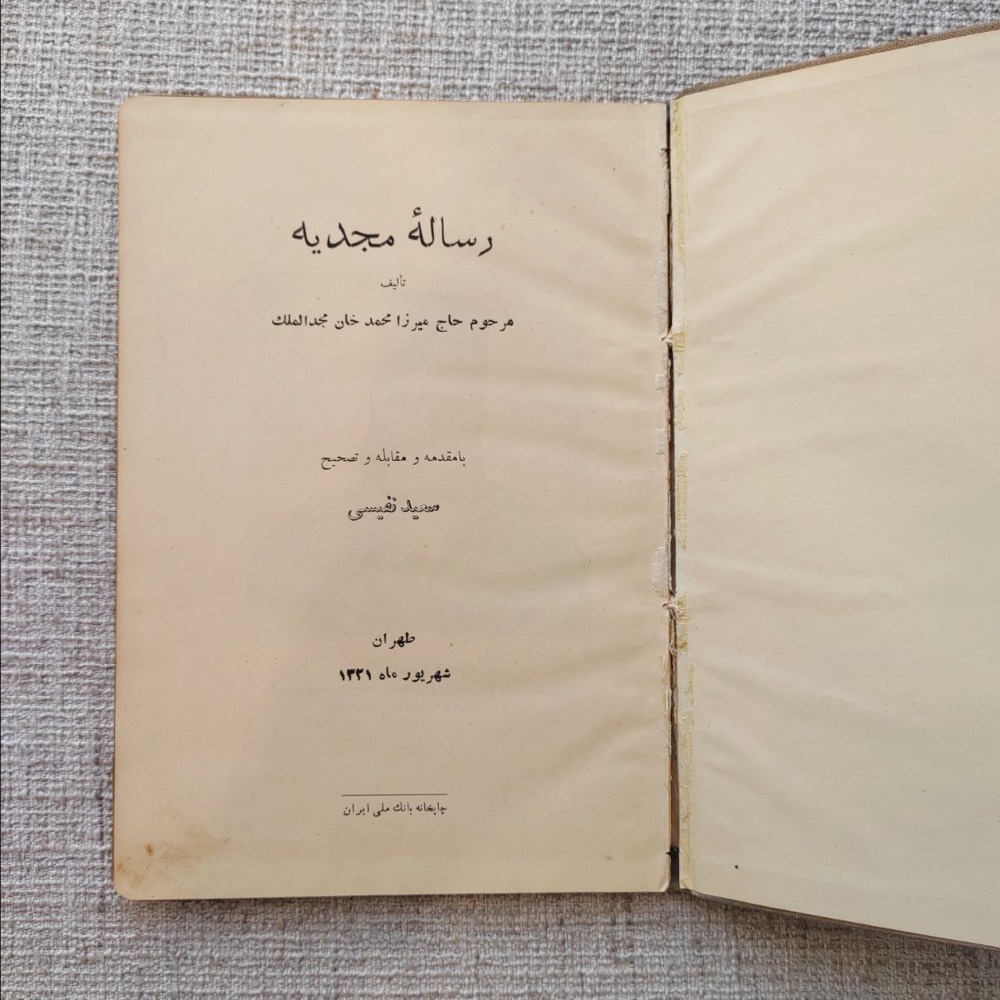 رسالهٔ مجدیه
تألیف
مرحوم حاج میرزا محمد خان مجدالملک
بامقدمه و مقابله و تصحیح
سعید نفیسی
طهران
شهریور ماه ۱۳۲۱
چاپخانه بانک ملی ایران